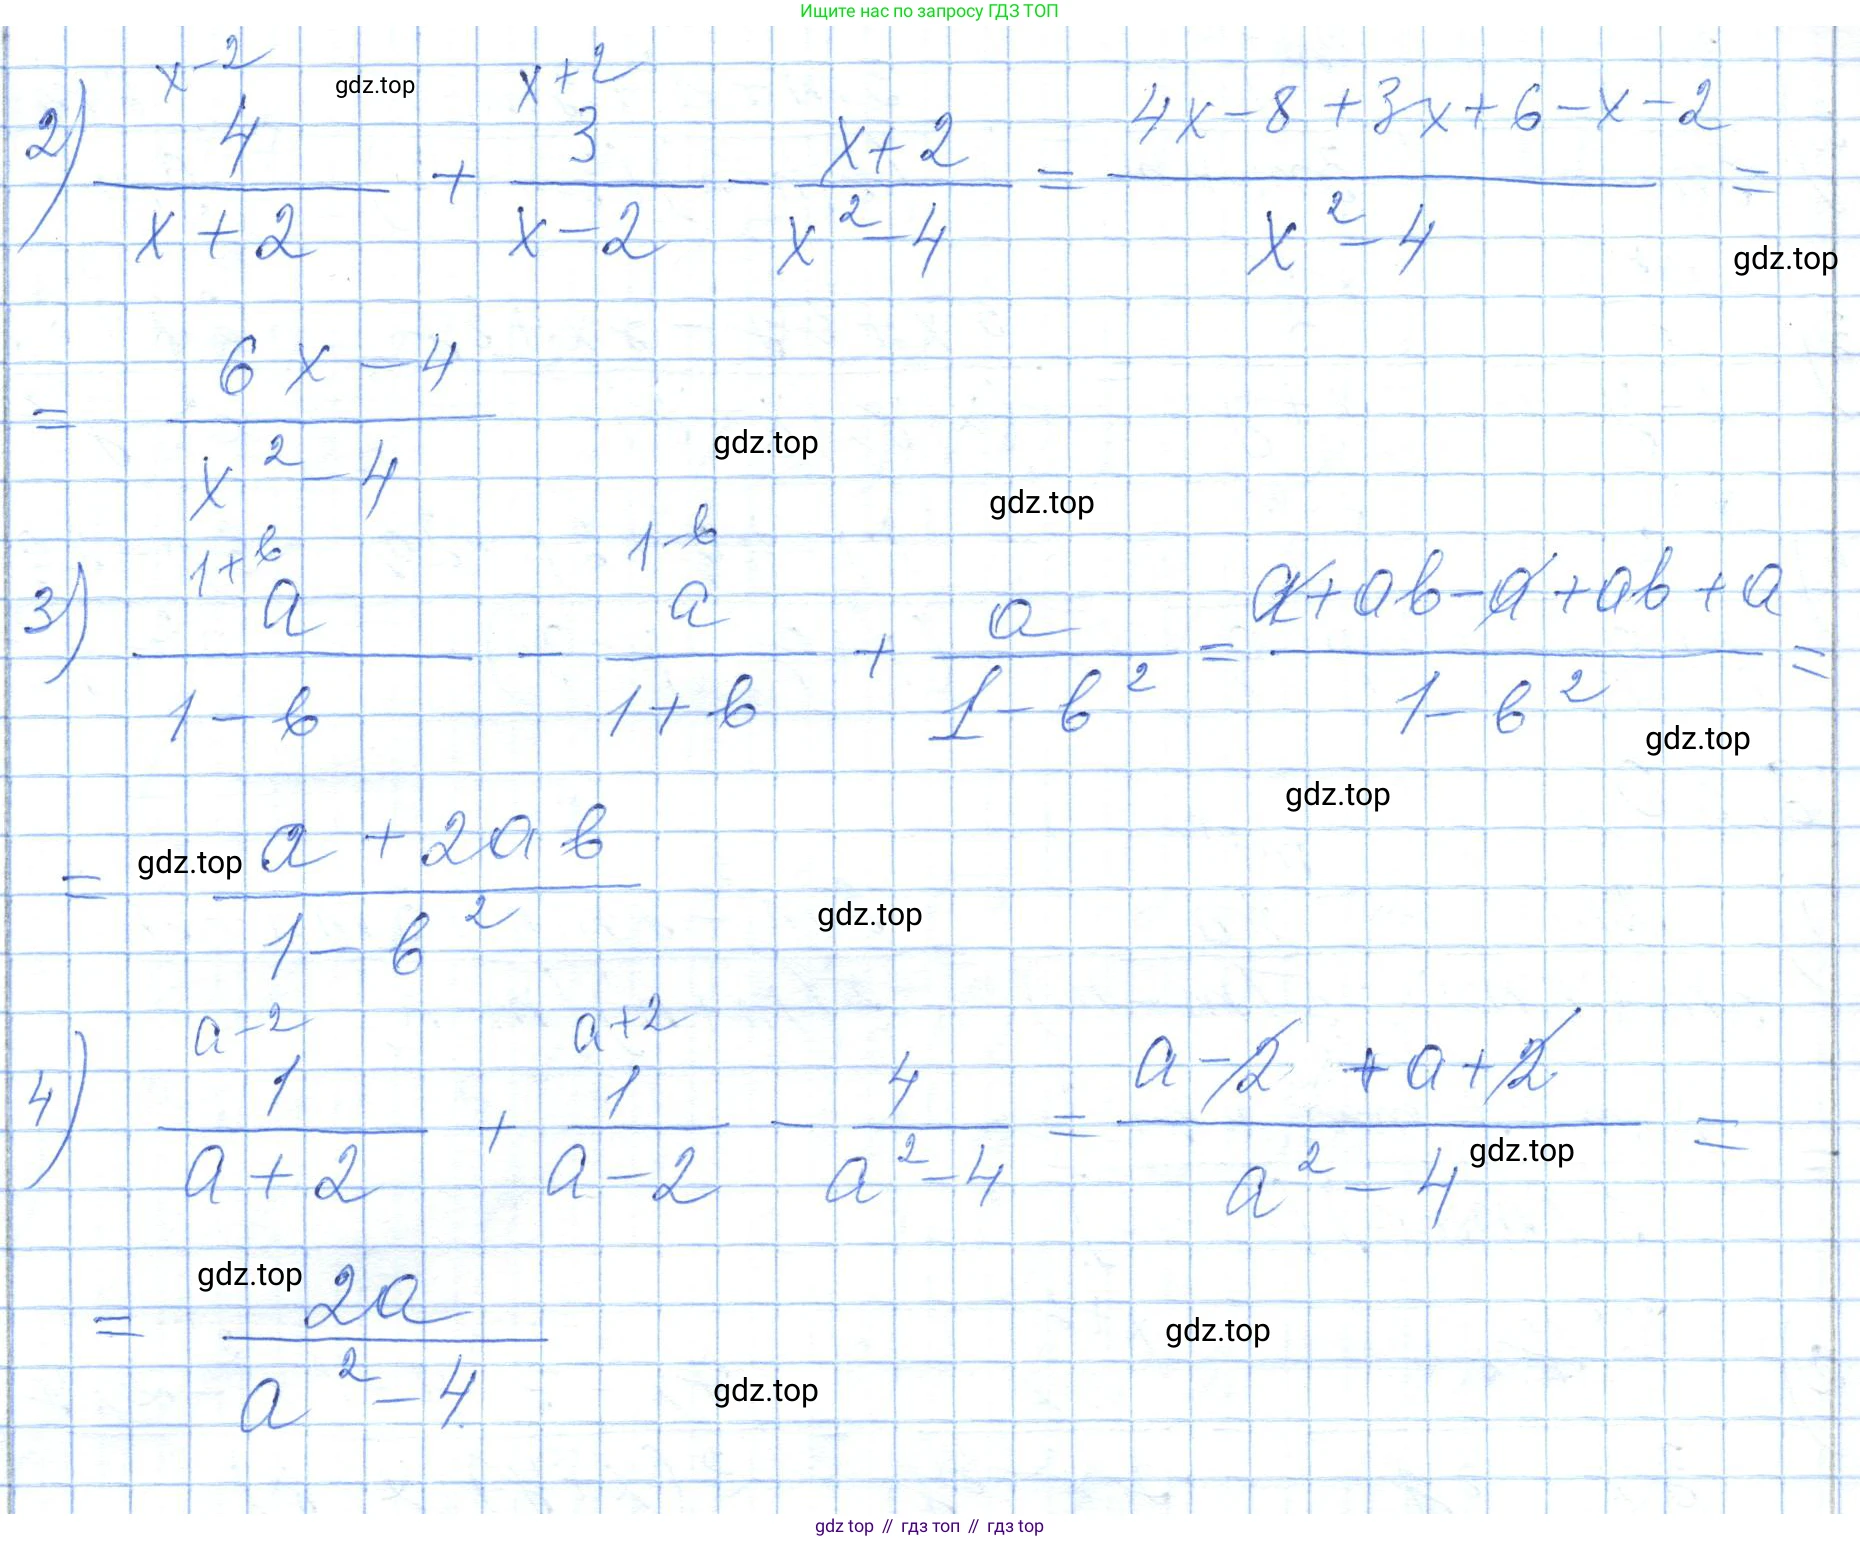 Ищите нас по запросу ГДЗ ТОП
x-2 x+2
2) 4/(x+2) + 3/(x-2) - (x+2)/(x²-4) = (4x-8+3x+6-x-2)/(x²-4) =
gdz.top
gdz.top
= (6x-4)/(x²-4)
gdz.top
gdz.top
1+b 1-b
3) a/(1-b) - a/(1+b) + a/(1-b²) = (a+ab-a+ab+a)/(1-b²) =
gdz.top
gdz.top
= (a+2ab)/(1-b²)
gdz.top
gdz.top
a-2 a+2
4) 1/(a+2) + 1/(a-2) - 4/(a²-4) = (a-2+a+2)/(a²-4) =
gdz.top
gdz.top
= 2a/(a²-4)
gdz.top
gdz.top
gdz top // гдз топ // гдз top